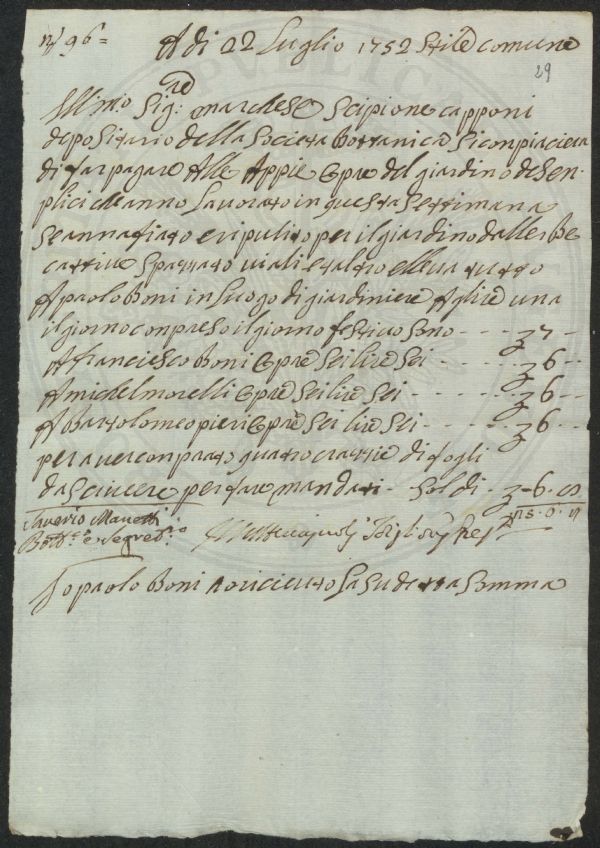 N 96=
A di 22 Luglio 1752 Stile comune
29
Ill.mo Sig.re marchese Scipione capponi
depositario della Societa bottanica Si conpiacera
di far pagare Alle Appie opre del giardino de Sen
plici che anno Lavorato in questa Settimana
Se annafiato e ripulito per il giardino dalle rbe
cattive Spazzato viali e
A paolo Boni in luogo di giardiniere A lire una
il giorno conpreso il giorno festivo Sono - - - - 7 -
A franciesco Boni opre Sei lire Sei - - - - 6 - -
A michel morelli opre Sei lire Sei - - - - 6 - -
A Bartolomeo pieri opre Sei lire Sei - - - 6 - -
per aver conprato quatro crazzie di fogli
da Scivere per fare mandati - Soldi - - 6 -
Saverio Manetti
Bott.co e Segret.rio
Io paolo Boni o riceuto La Sudetta Somma